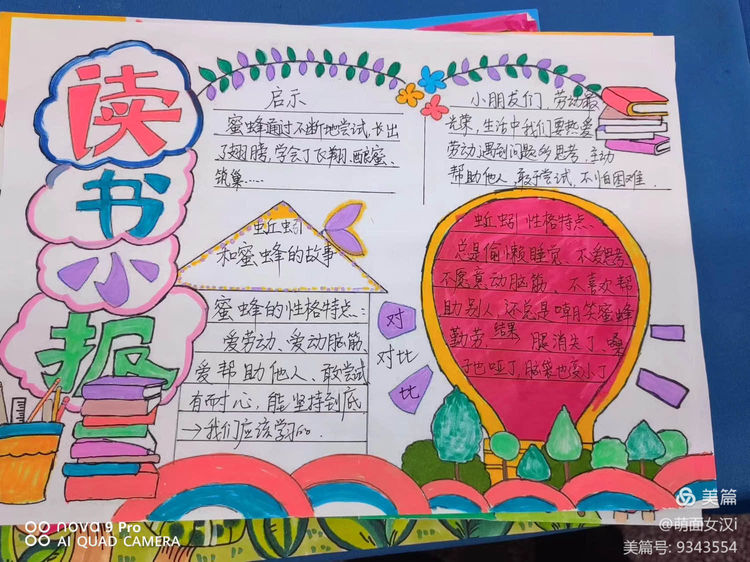 读
书
小
报
启示
蜜蜂通过不断地尝试,长出
了翅膀,学会了飞翔、酿蜜、
筑巢……
小朋友们,劳动最
光荣,生活中我们要热爱
劳动,遇到问题多思考,主动
帮助他人,敢于尝试,不怕困难.
蚯蚓
和蜜蜂的故事
蜜蜂的性格特点:
爱劳动、爱动脑筋、
爱帮助他人、敢尝试
有耐心,能坚持到底
→我们应该学习.
对
对比
比
蚯蚓 性格特点.
总是偷懒睡觉、不爱思考
不愿意动脑筋、不喜欢帮
助别人,还总是嘲笑蜜蜂
勤劳. 结果 腿消失了、嗓
子也哑了,脑袋也变小了
nova 9 Pro
AI QUAD CAMERA
美篇
@萌面女汉i
美篇号: 9343554